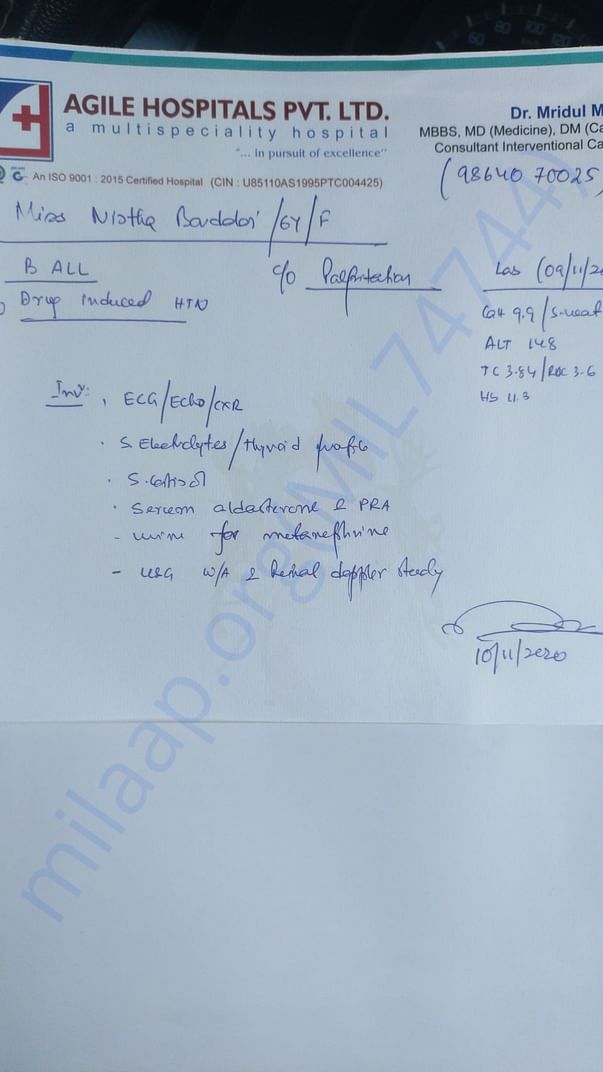 AGILE HOSPITALS PVT. LTD.
a multispeciality hospital
"... in pursuit of excellence"
An ISO 9001 : 2015 Certified Hospital (CIN : U85110AS1995PTC004425)
Dr. Mridul M
MBBS, MD (Medicine), DM (Ca
Consultant Interventional Ca
(98640 70025)
Miss Nistha Bardoloi /6Y/F
B ALL
Drug Induced HTN
c/o Palpitation
Lab (09/11/20
Ca+ 9.9 / S.
ALT 148
TC 3.84/RBC 3.6
Hb 11.3
Inv: , ECG/Echo/CXR
· S. Electrolytes/Thyroid profile
· S. Cortisol
· Serum aldosterone & PRA
- urine for metanephrine
- USG W/A & Renal doppler study
10/11/2020
milaap.org(MIL747447)